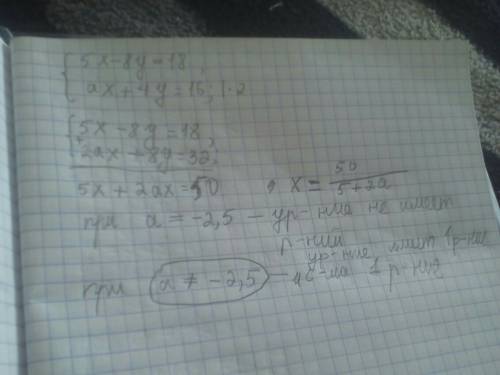 5x-8y=18,
ax+4y=16; |·2
5x-8y=18,
2ax+8y=32;
5x+2ax=50, x=50/(5+2a)
при a=-2,5 - ур-ние не имеет
р-ний
ур-ние имеет 1 р-ние
при a≠-2,5 - 1 р-ние